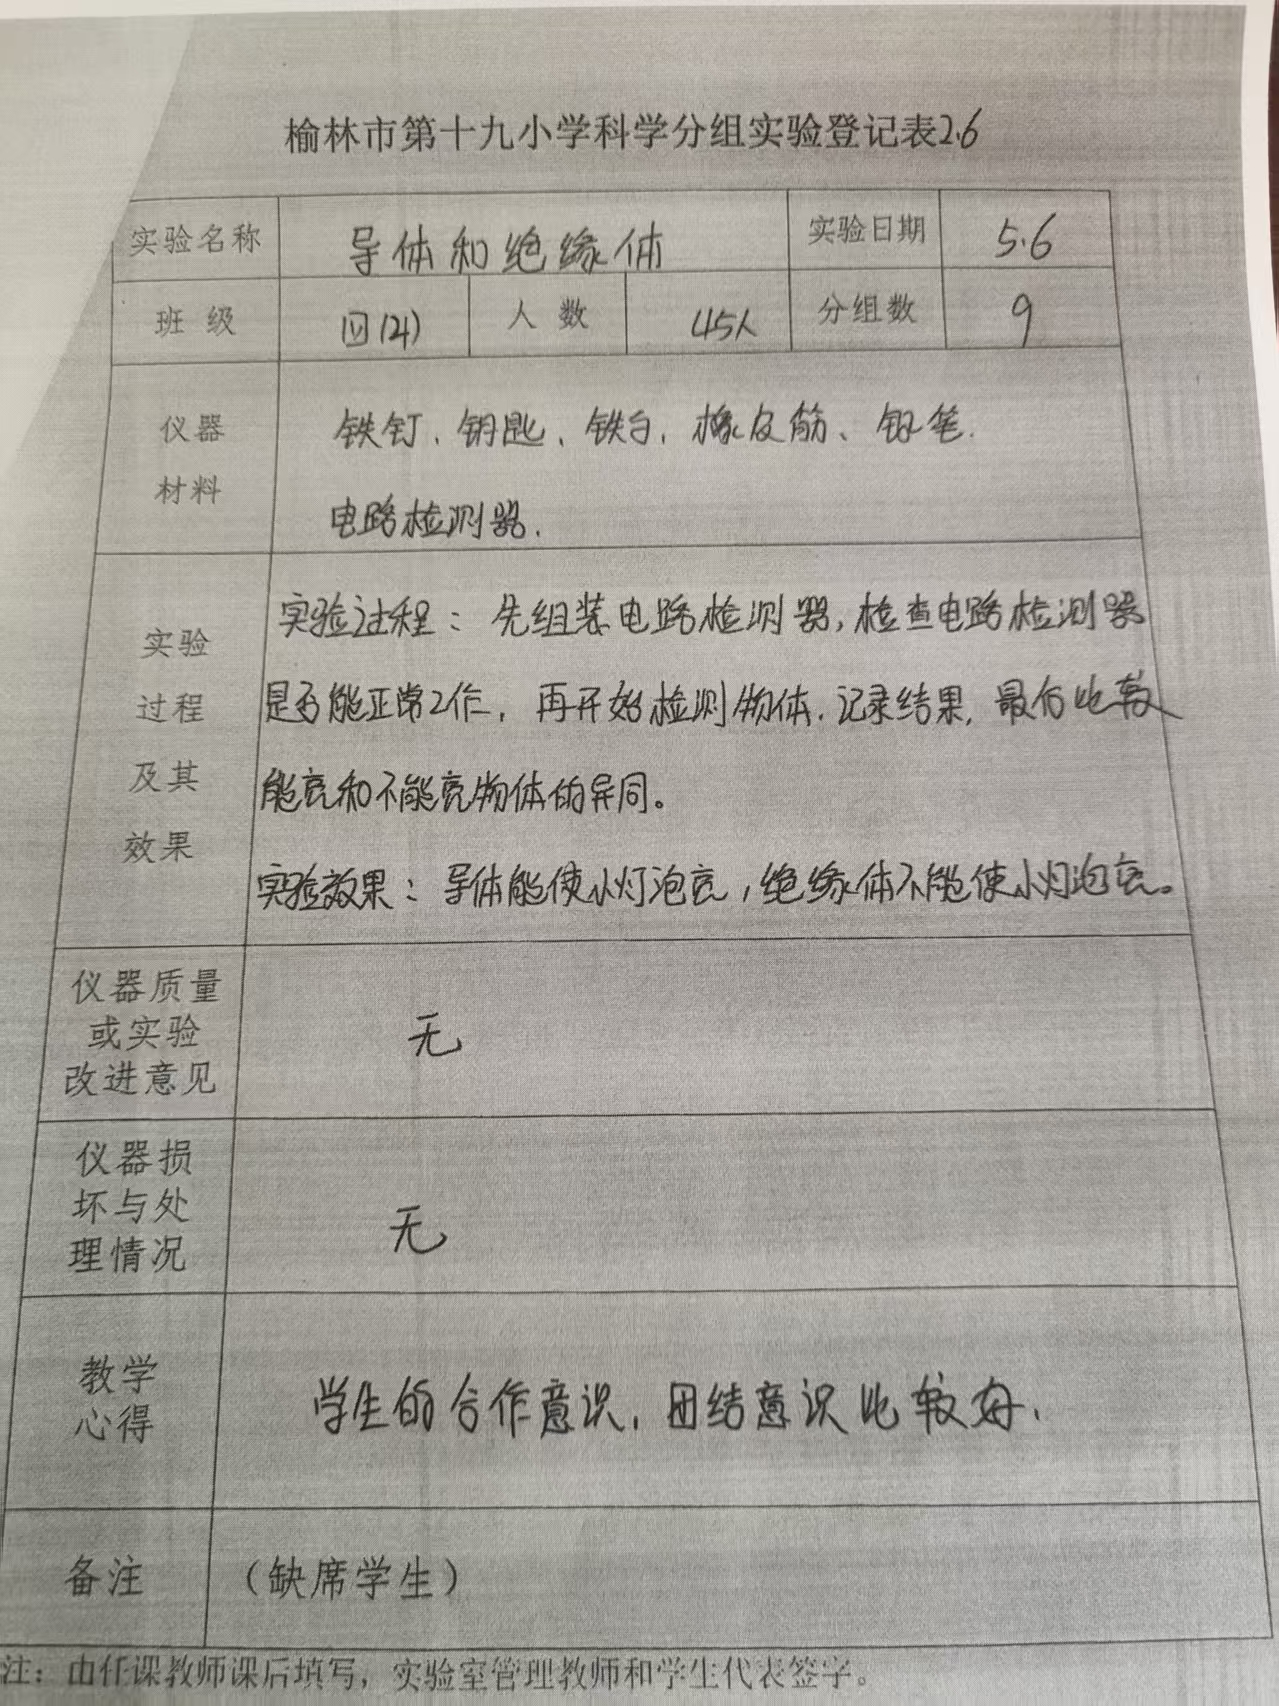 榆林市第十九小学科学分组实验登记表2.6
实验名称 导体和绝缘体 实验日期 5.6
班 级 四(2) 人 数 45人 分组数 9
仪器
材料
铁钉、钥匙、铁勺、橡皮筋、铅笔.
电路检测器.
实验
过程
及其
效果
实验过程：先组装电路检测器,检查电路检测器
是否能正常工作，再开始检测物体.记录结果,最后比较
能亮和不能亮物体的异同。
实验效果：导体能使小灯泡亮,绝缘体不能使小灯泡亮。
仪器质量
或实验
改进意见
无
仪器损
坏与处
理情况
无
教学
心得
学生的合作意识,团结意识比较好.
备注 （缺席学生）
注：由任课教师课后填写，实验室管理教师和学生代表签字。